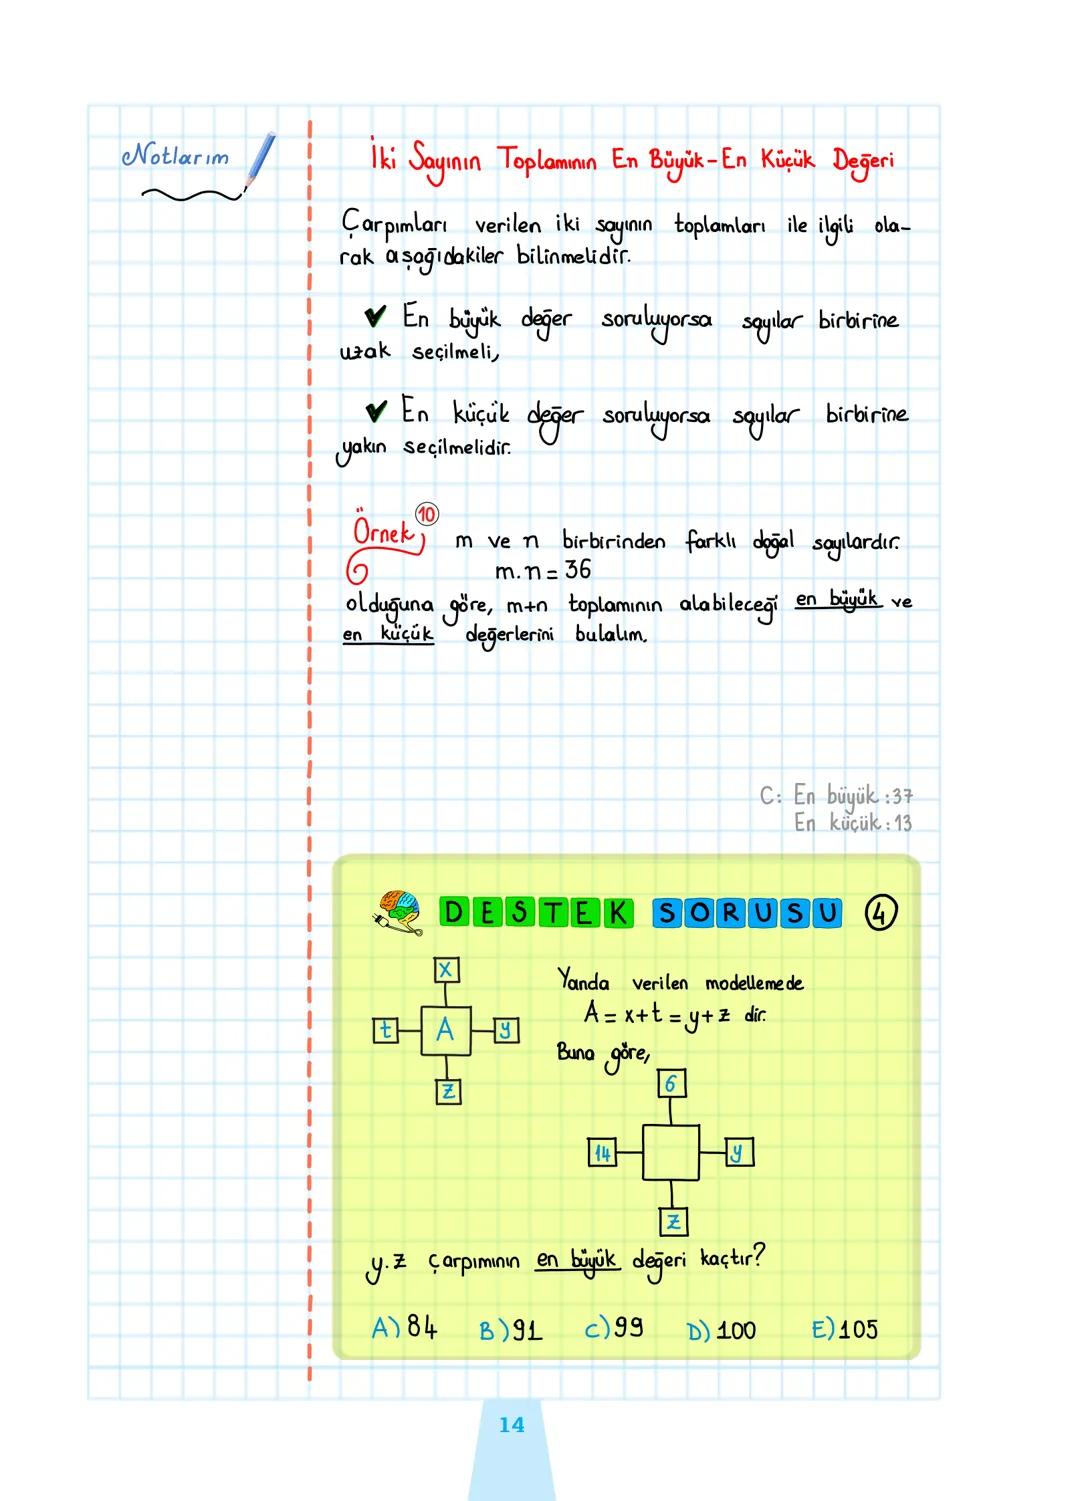 Notlarım
İki Sayının Toplamının En Büyük-En Küçük Değeri
Çarpımları verilen iki sayının toplamları ile ilgili ola-
rak aşağıdakiler bilinmelidir.
✔ En büyük değer soruluyorsa sayılar birbirine
uzak seçilmeli,
✔ En küçük değer soruluyorsa sayılar birbirine
yakın seçilmelidir.
Örnek 10
m ve n birbirinden farklı doğal sayılardır.
m.n = 36
olduğuna göre, m+n toplamının alabileceği en büyük ve
en küçük değerlerini bulalım.
C: En büyük : 37
En küçük : 13
DESTEK SORUSU 4
x
t A y
z
Yanda verilen modellemede
A = x+t = y+z dir.
Buna göre,
6
14 y
z
y.z çarpımının en büyük değeri kaçtır?
A) 84 B) 91 C) 99 D) 100 E) 105
14